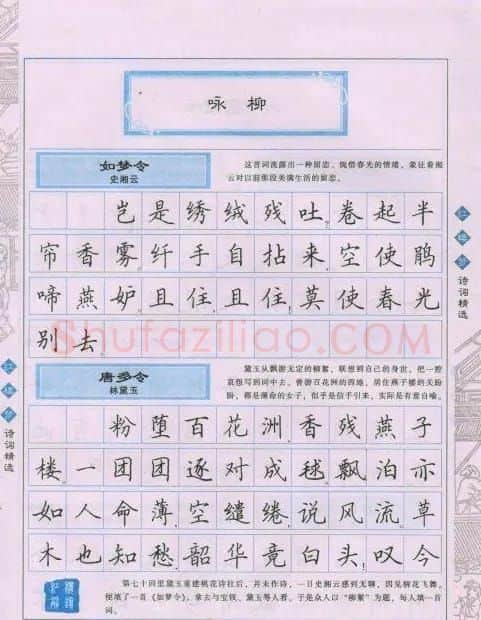 咏柳
如梦令
史湘云
这首词流露出一种留恋、惋惜春光的情绪，象征着湘
云对以前那段美满生活的留恋。
岂是绣绒残吐，卷起半
帘香雾，纤手自拈来，空使鹃
啼燕妒。且住，且住！莫使春光
别去。
Shufaziliao.com
唐多令
林黛玉
黛玉从飘游无定的柳絮，联想到自己的身世，把一腔
哀怨写到词中去。曾游百花洲的西施，居住燕子楼的关盼
盼，都是薄命的女子，似乎是信手引来，实际是有意自喻。
粉堕百花洲，香残燕子
楼。一团团逐对成毬。飘泊亦
如人命薄，空缱绻，说风流。草
木也知愁，韶华竟白头！叹今
第七十回里黛玉重建桃花诗社后，并未作诗，一日史湘云感到无聊，因见柳花飞舞，
便填了一首《如梦令》，拿去与宝钗、黛玉等人看。于是众人以“柳絮”为题，每人填一首
词。
红楼梦
诗词精选
红楼梦
诗词精选